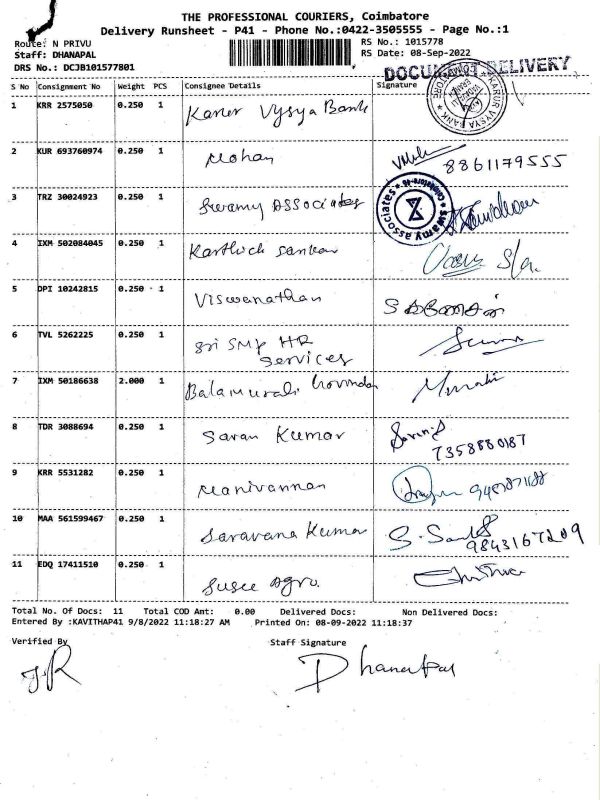 THE PROFESSIONAL COURIERS, Coimbatore
Delivery Runsheet - P41 - Phone No.:0422-3505555 - Page No.:1
Route: N PRIVU RS No.: 1015778
Staff: DHANAPAL RS Date: 08-Sep-2022
DRS No.: DCJB101577801
DOCUMENT DELIVERY
S No Consignment No Weight PCS Consignee Details Signature
KARUR VYSYA BANK
1 KRR 2575050 0.250 1 Karur Vysya Bank
2 KUR 693760974 0.250 1 Mohan 8861179555
3 TRZ 30024923 0.250 1 Swamy Associates
swamy associates Coimbatore-18
4 IXM 502084045 0.250 1 Karthick Sankar
5 DPI 10242815 0.250 1 Viswanathan
6 TVL 5262225 0.250 1 Sri SMP HR
Services
7 IXM 50186638 2.000 1 Balamurali Govindan Murali
8 TDR 3088694 0.250 1 Saran Kumar
7358880187
9 KRR 5531282 0.250 1 Manivannan
10 MAA 561599467 0.250 1 Saravana Kumar
11 EDQ 17411510 0.250 1 Susee Agro.
Total No. Of Docs: 11 Total COD Amt: 0.00 Delivered Docs: Non Delivered Docs:
Entered By :KAVITHAP41 9/8/2022 11:18:27 AM Printed On: 08-09-2022 11:18:37
Verified By Staff Signature
Dhanapal